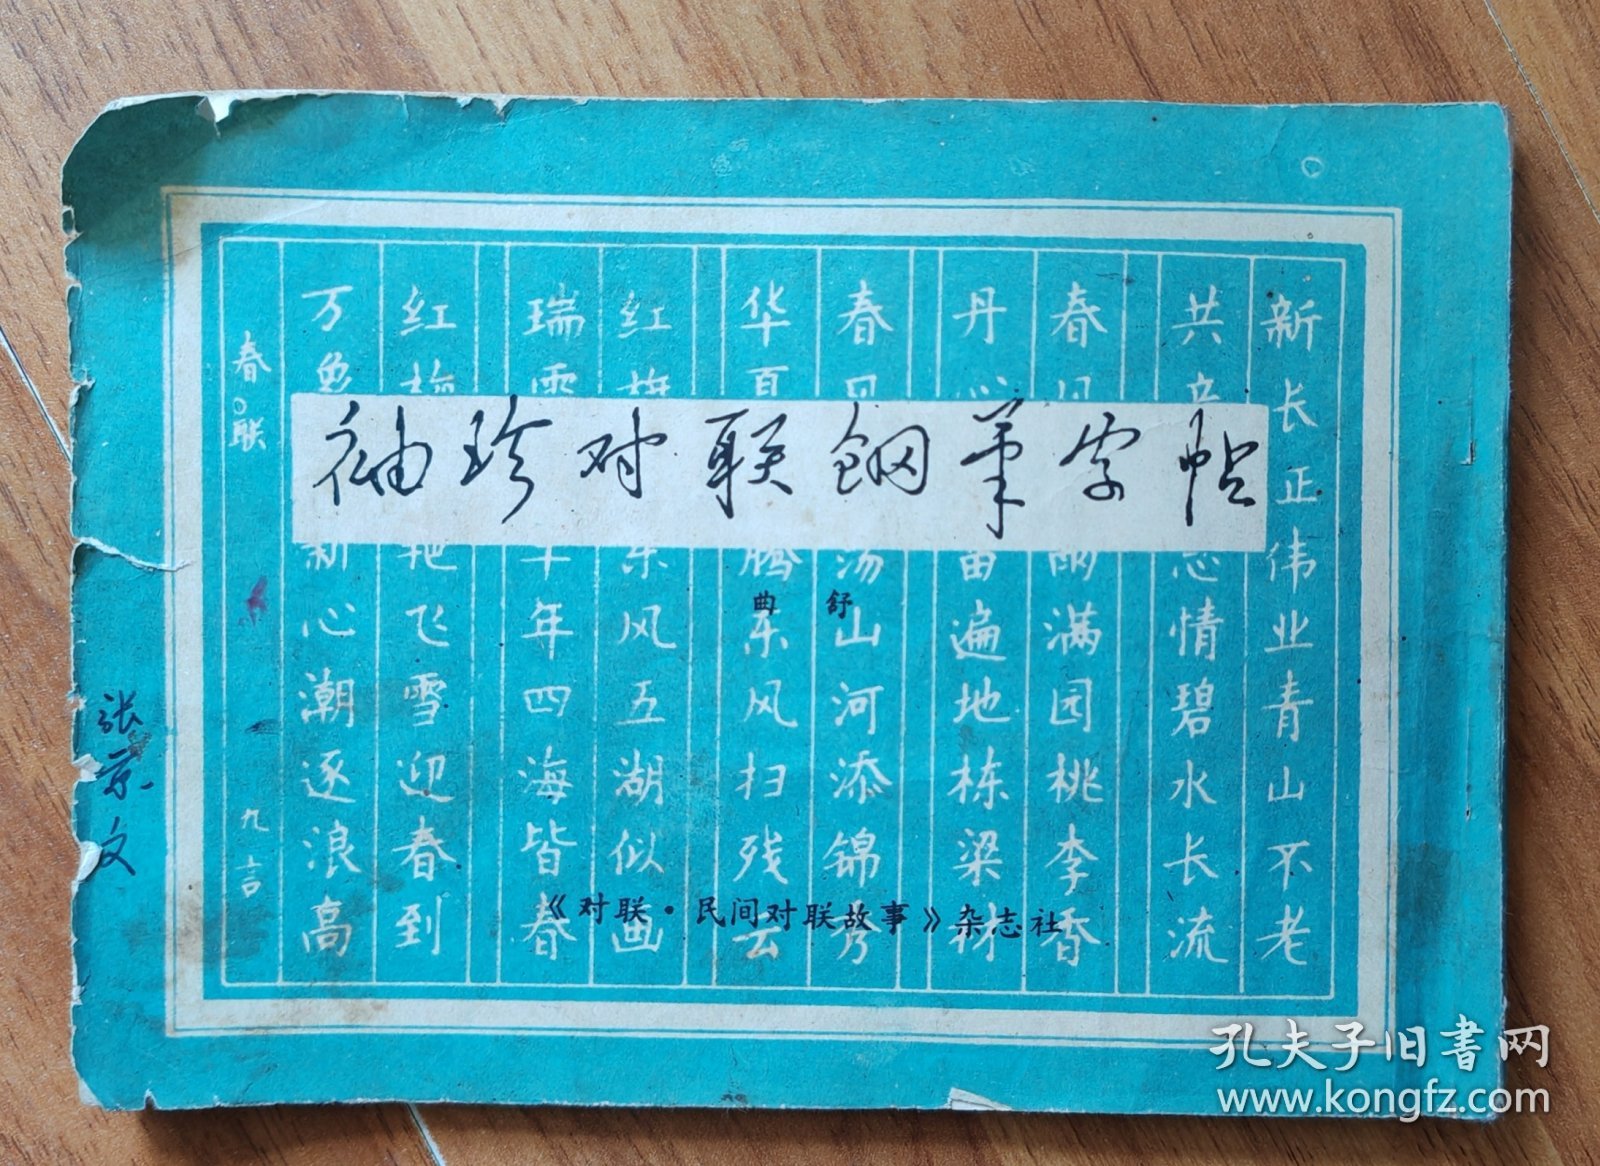 袖珍对联鋼筆字帖
曲 舒
《对联·民间对联故事》杂志社
新长正伟业青山不老
共 志情碧水长流
春风 满园桃李香
丹心 遍地栋梁材
春风 荡山河添锦秀
华夏 腾东风扫残云
红旗 东风五湖似画
瑞雪 年四海皆春
红梅 艳飞雪迎春到
万象 新心潮逐浪高
春联
九言
张京文
孔夫子旧书网
www.kongfz.com